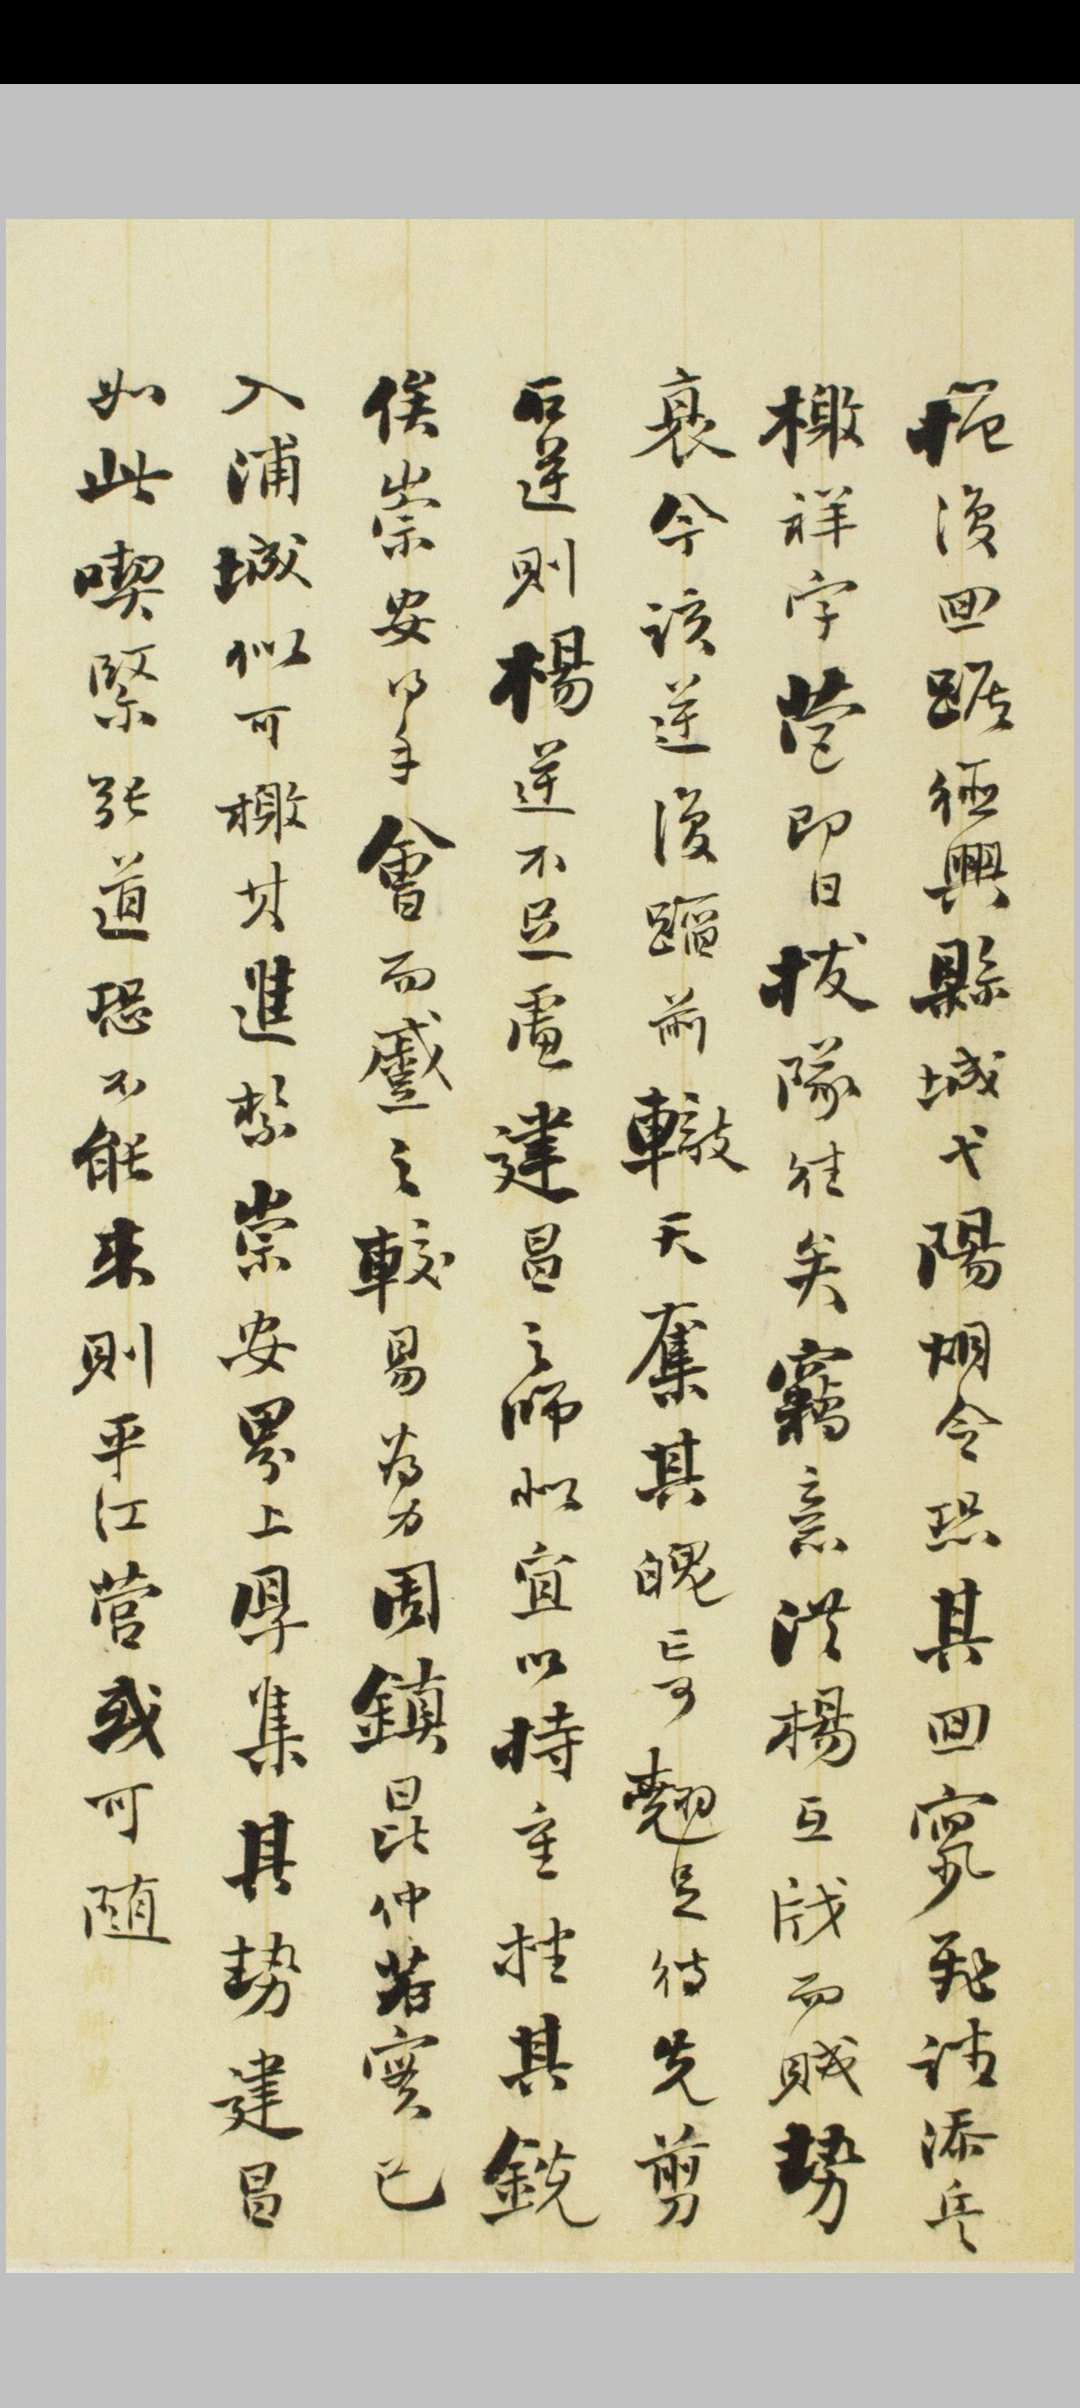 復回踞德興縣城弋陽炯令恐其回竄飛請添兵
檄祥字營即日拔隊往矣竊意洪楊互戕而賊勢
衰今該逆復蹈前轍天奪其魄計可翹足待先剪
石逆則楊逆不足慮建昌之師似宜以持重挫其銳
俟崇安得手會而蹙之較易為力周鎮昆仲若實已
入浦城似可檄其進紮崇安界上厚集其勢建昌
如此喫緊張道恐不能來則平江營或可隨